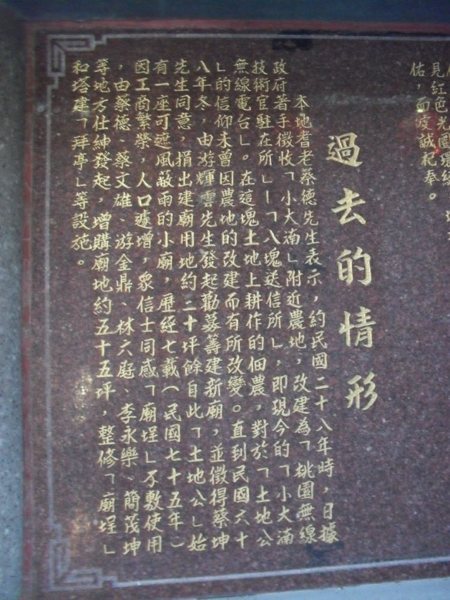 見紅色光圈環繞
佑,而虔誠祀奉。
過去的情形
本地耆老蔡德先生表示,約民國二十八年時,日據
政府著手徵收「小大湳」附近農地,改建為「桃園無線
技術官駐在所」—「八塊送信所」,即現今的「小大湳
無線電台」。在這塊土地上耕作的佃農,對於「土地公
」的信仰未曾因農地的改建而有所改變。直到民國六十
八年冬,由游輝雲先生發起勸募籌建新廟,並徵得蔡坤
先生同意,捐出建廟用地約三十坪餘自此「土地公」始
有一座可遮風蔽雨的小廟,歷經七載(民國七十五年)
因工商繁榮,人口遽增,眾信士同感「廟埕」不敷使用
,由蔡德、蔡文雄、游金鼎、林六庭 李永樂、簡茂坤
等地方仕紳發起,增購廟地約五十五坪,整修「廟埕」
和塔建「拜亭」等設施。